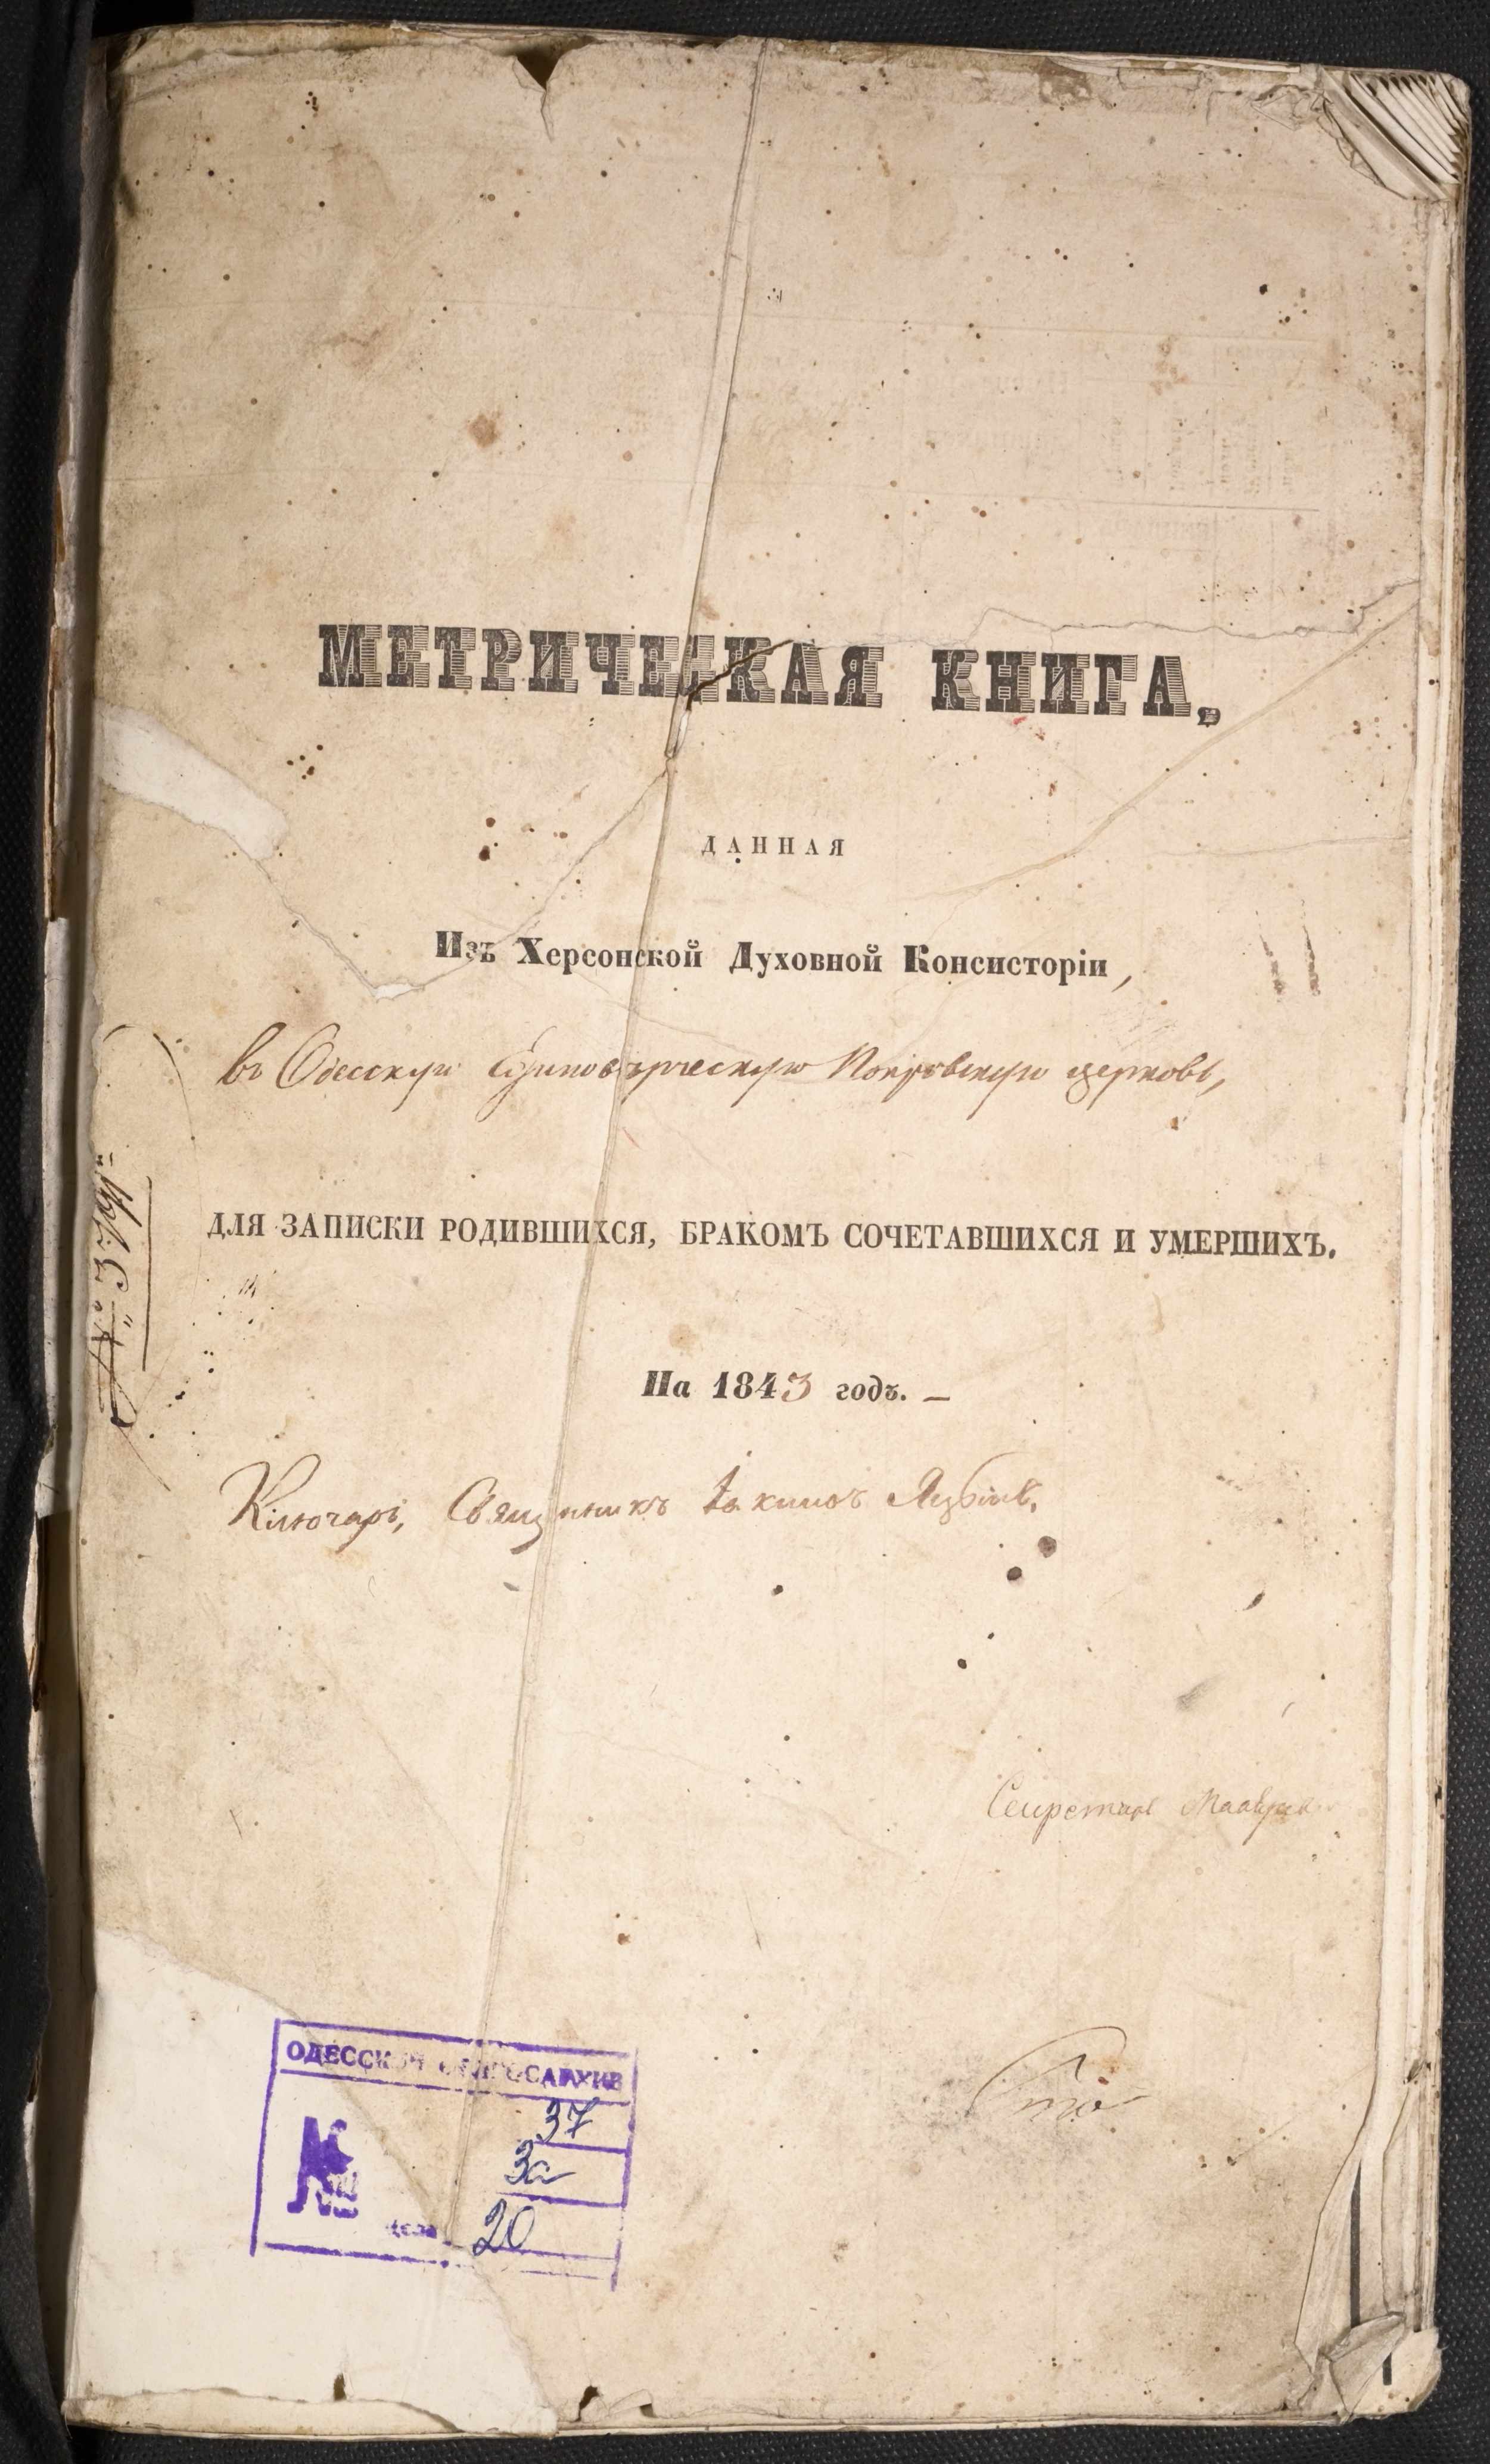 МЕТРИЧЕСКАЯ КНИГА,
ДАННАЯ
Изъ Херсонской Духовной Консисторіи,
въ Одесскую Единовѣрческую Покровскую церковь,
ДЛЯ ЗАПИСКИ РОДИВШИХСЯ, БРАКОМЪ СОЧЕТАВШИХСЯ И УМЕРШИХЪ.
На 1843 годъ. –
Ключарь, Священникъ
Секретарь
ОДЕССКИЙ ОБЛГОСАРХИВ
37
3а
20